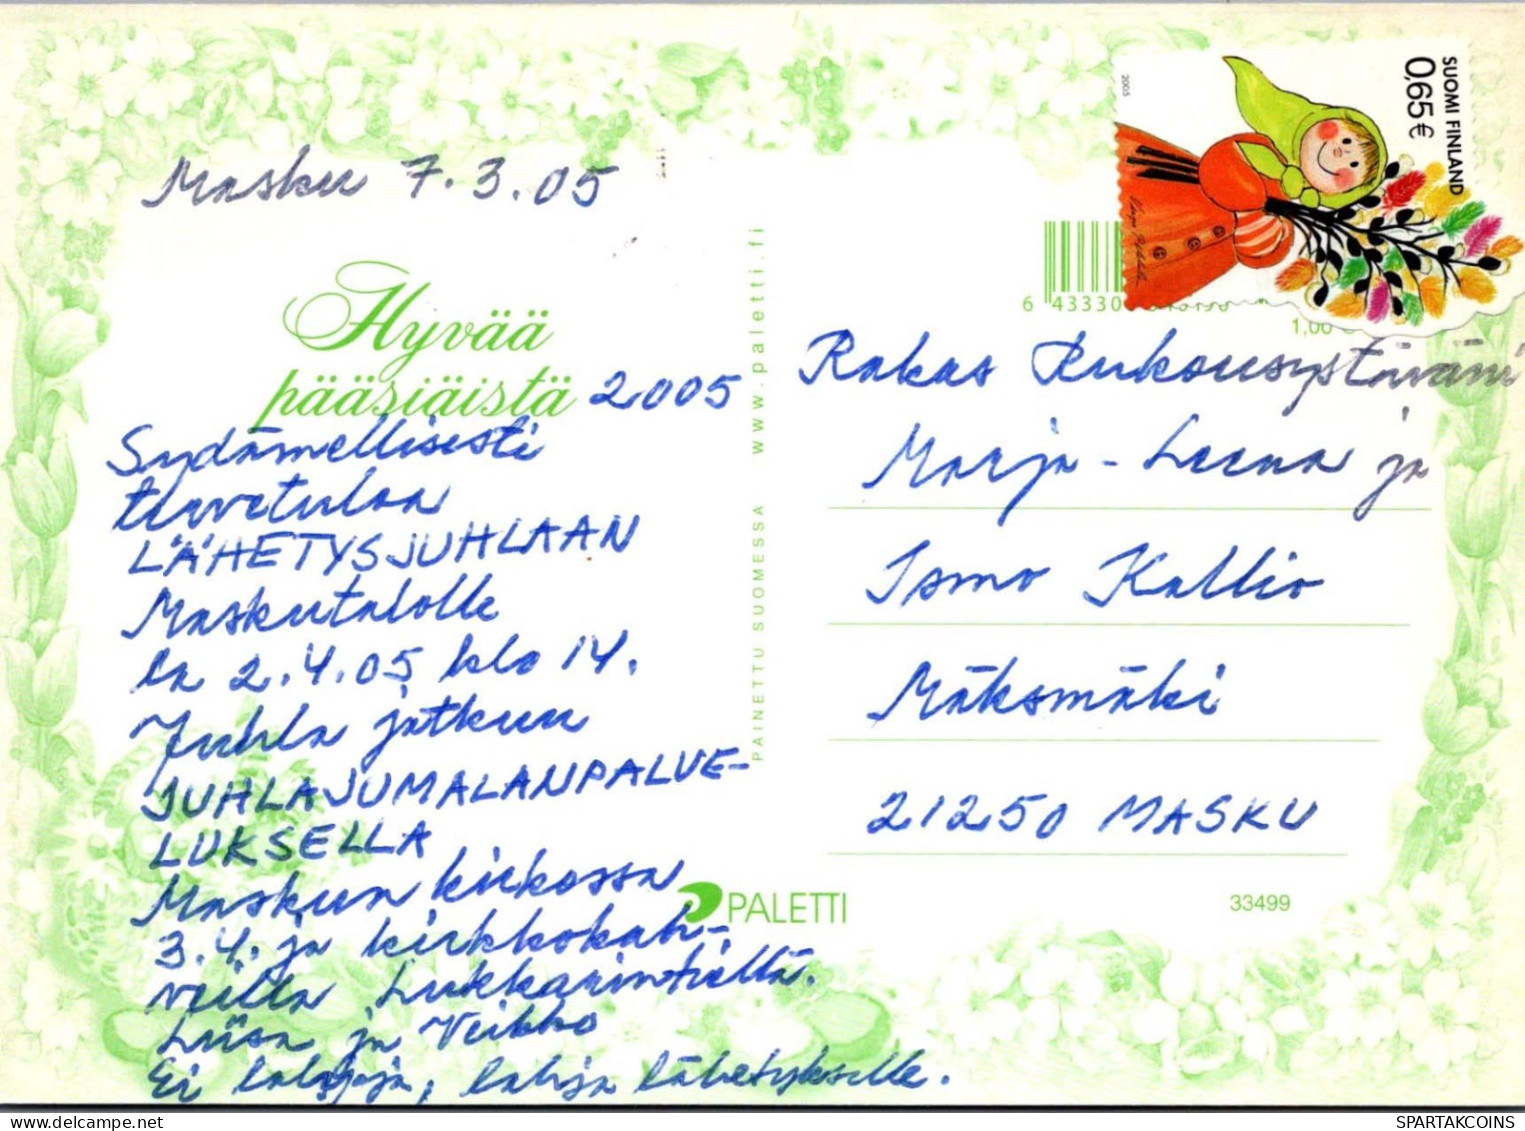 Masku 7.3.05
Hyvää
pääsiäistä 2005
Sydämellisesti
tervetuloa
LÄHETYSJUHLAAN
Maskutalolle
la 2.4.05 klo 14.
Juhla jatkuu
JUHLAJUMALANPALVE-
LUKSELLA
Maskun kirkossa
3.4. ja kirkkokah-
veilla Lukkarintiellä.
Liisa ja Veikko
Ei lahjoja, lahja lähetykselle.
PAINETTU SUOMESSA www.paletti.fi
PALETTI
2005
SUOMI FINLAND
0,65€
6 43330
1,00 €
Rakas Rukousystäväni
Marja-Leena ja
Ismo Kallio
Mäksmäki
21250 MASKU
33499
SPARTAKCOINS